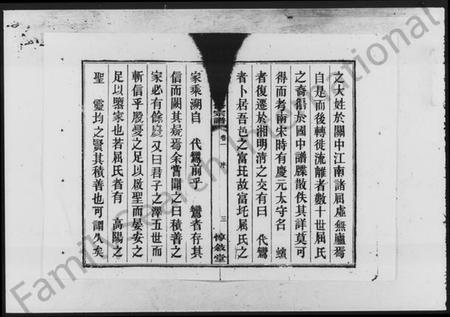 之大姓於關中江南諸屈虛無廬焉
自是而後轉徙流離者數十世屈氏
之裔猖於國中譜牒散佚其詳莫可
得而考南宋時有慶元太守名
者復遷於湘明清之交有曰 代鸞
者卜居吾邑之富圫故富圫屈氏之
宗譜
卷一
三
惇敘堂
家乘溯自 代鸞前乎 鸞者存其
信而闕其疑焉余嘗聞之曰積善之
家必有餘慶又曰君子之澤五世而
斬信乎殷憂之足以啟聖而晏安之
足以隳家也若屈氏者有 高陽之
聖 靈均之賢其積善也可謂至矣
FamilySearch International